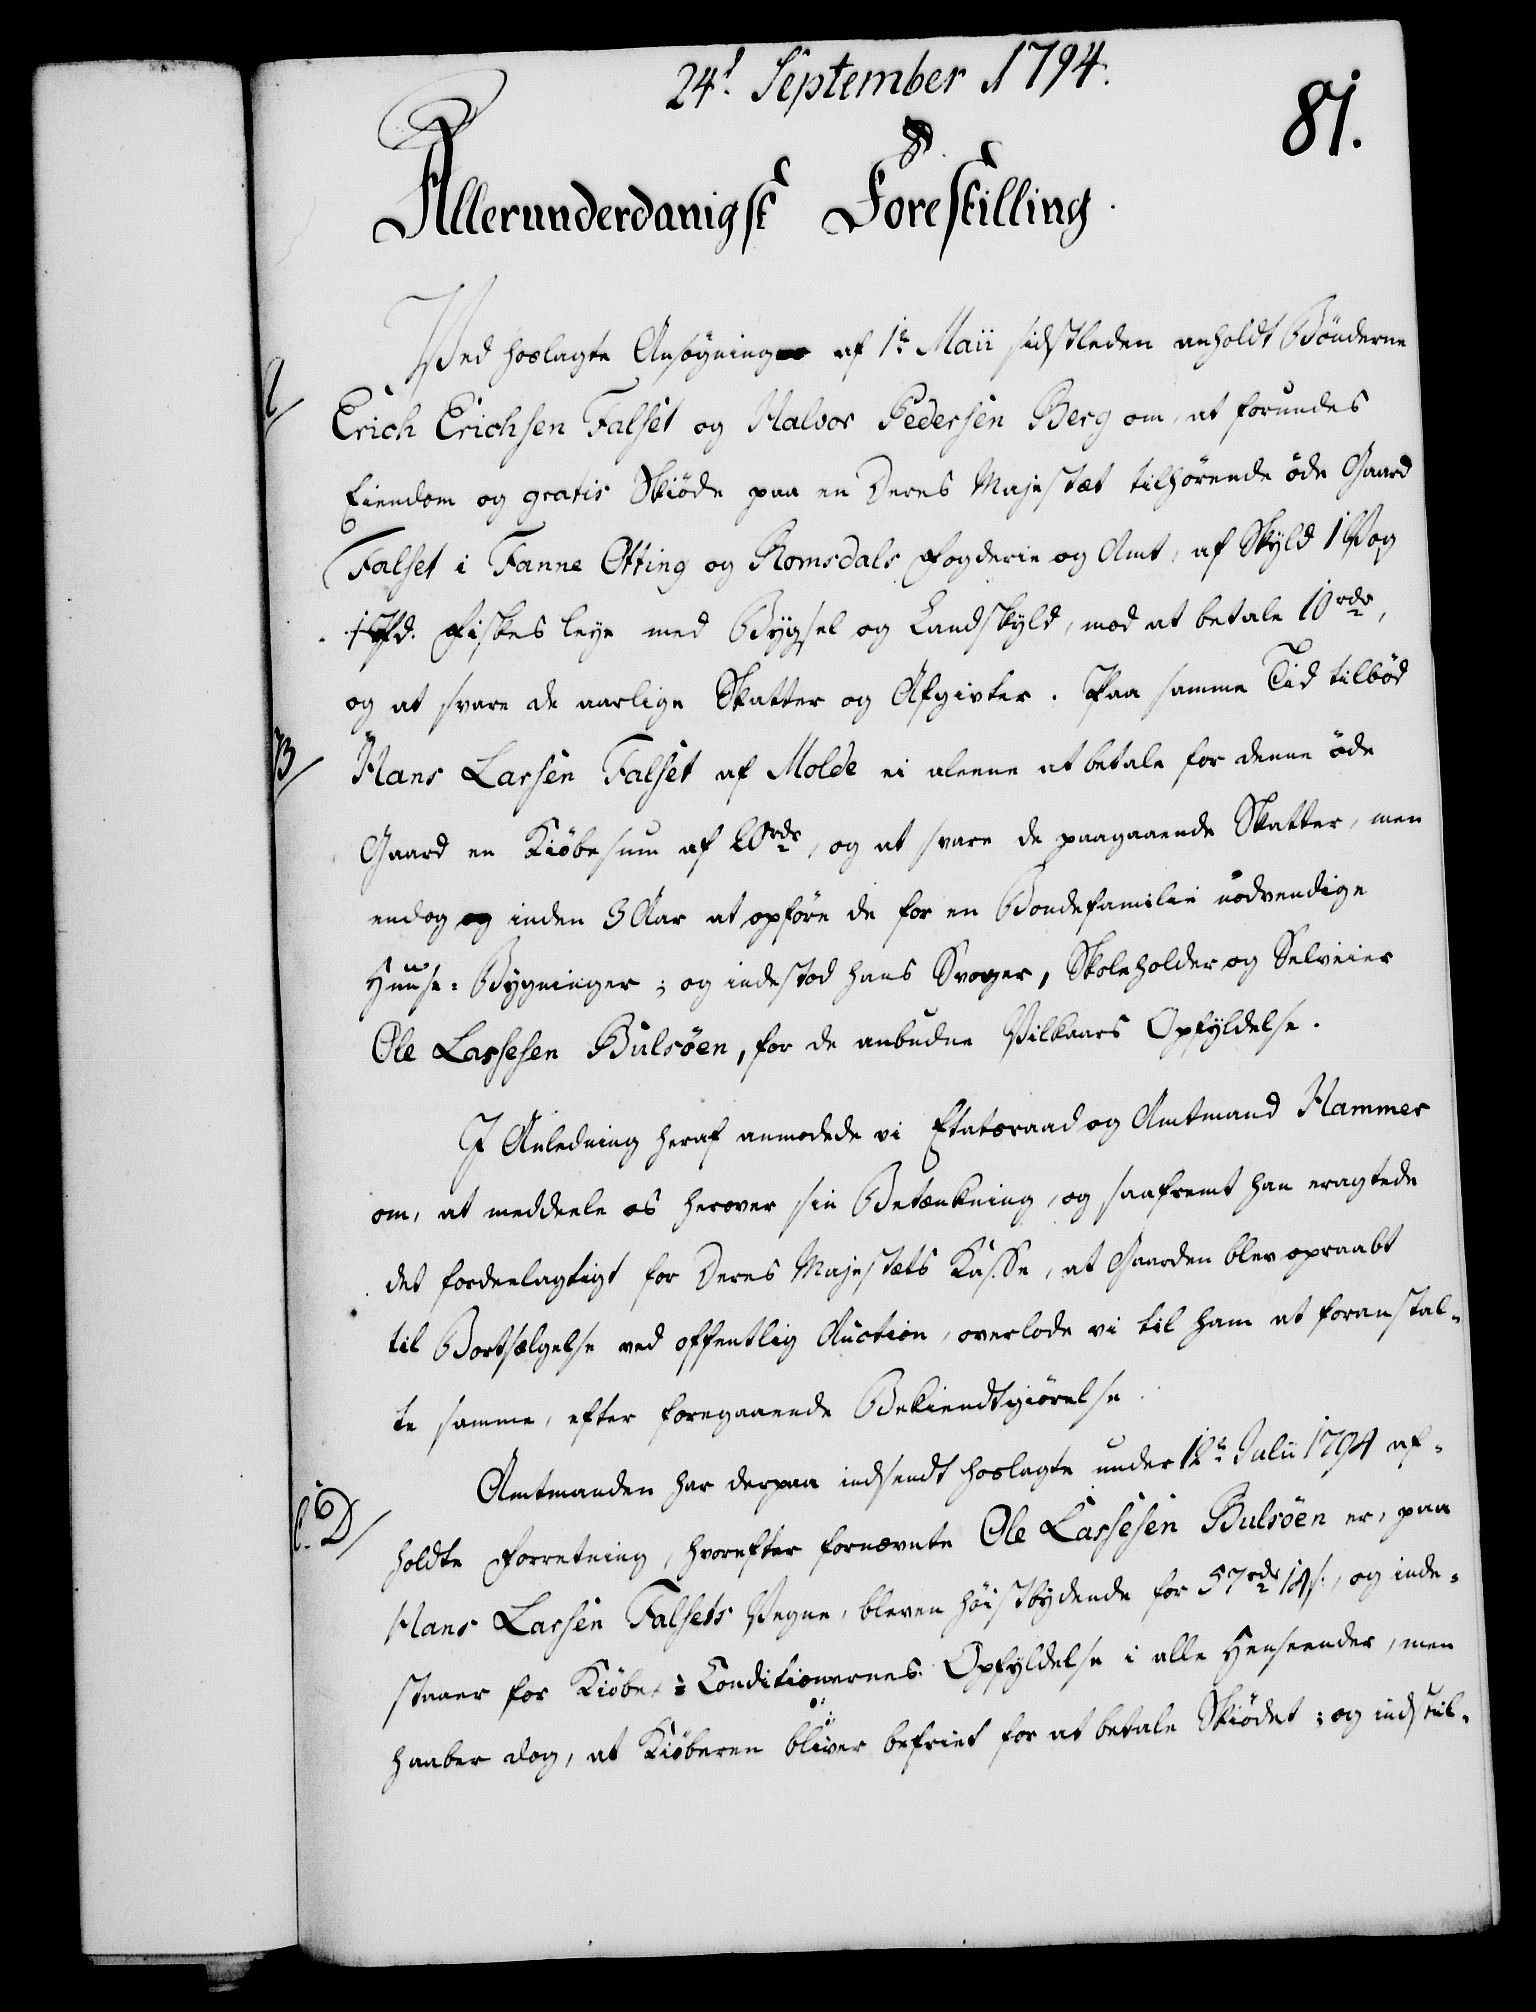 24t September 1794.
81.
Allerunderdanigst Forestilling.
Ved hoslagte Ansøgning af 1te Maii sidstleden anholdt Bønderne
A/
Erich Erichsen Falset og Halvor Pedersen Berg om, at forundes
Eiendom og gratis Skiøde paa en Deres Majestæt tilhørende øde Gaard
Falset i Fanne Otting og Romsdals Fogderie og Amt, af Skyld 1 Vog
1 Pd. Fiskes leye med Bygsel og Landskyld, mod at betale 10 rdr,
og at svare de aarlige Skatter og Afgivter. Paa samme Tid tilbød
B/
Hans Larsen Falset af Molde ei alleene at betale for denne øde
Gaard en Kiøbesum af 20 rdr, og at svare de paagaaende Skatter, men
endog og inden 3 Aar at opføre de for en Bondefamilie nødvendige
Huuse-Bygninger; og indestod hans Svoger, Skoleholder og Selveier
Ole Lassesen Bulsøen, for de anbudne Vilkaars Opfyldelse.
I Anledning heraf anmodede vi Etatsraad og Amtmand Hammer
om, at meddeele os herover sin Betænkning, og saafremt han eragtede
det fordeelagtigt for Deres Majestæts Kasse, at Gaarden blev opraabt
til Bortsælgelse ved offentlig Auction, overlode vi til ham at foranstal-
te samme, efter foregaaende Bekiendtgiørelse.
Amtmanden har derpaa indsendt hoslagte under 12te Julii 1794 af-
C. D/
holdte Forretning, hvorefter fornævnte Ole Lassesen Bulsøen er, paa
Hans Larsen Falsets Vegne, bleven høistbydende for 57 rdr 14 s., og inde-
staaer for Kiøbe-Conditionernes Opfyldelse i alle Henseender, men
haaber dog, at Kiøberen bliver befriet for at betale Skiødet; og indstil-